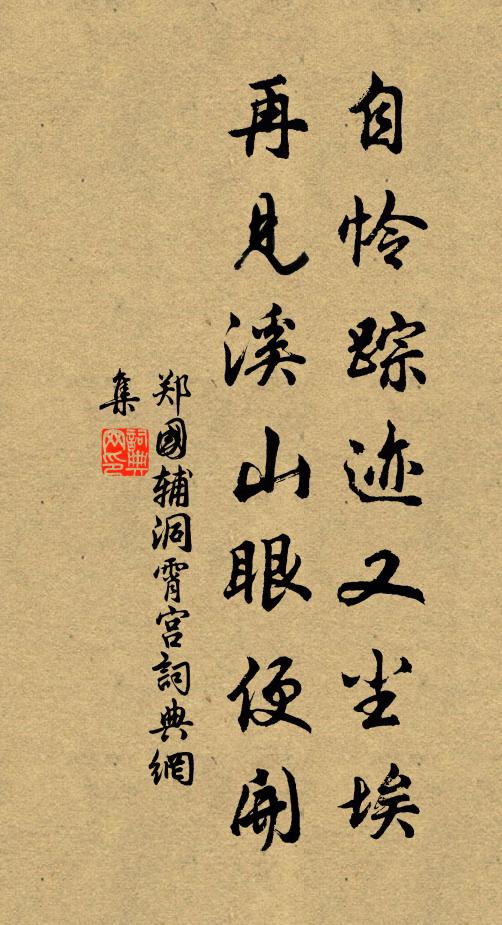 自怜踪迹又尘埃
再见溪山眼便开
郑国辅洞霄宫詞典網
集
詞典网印